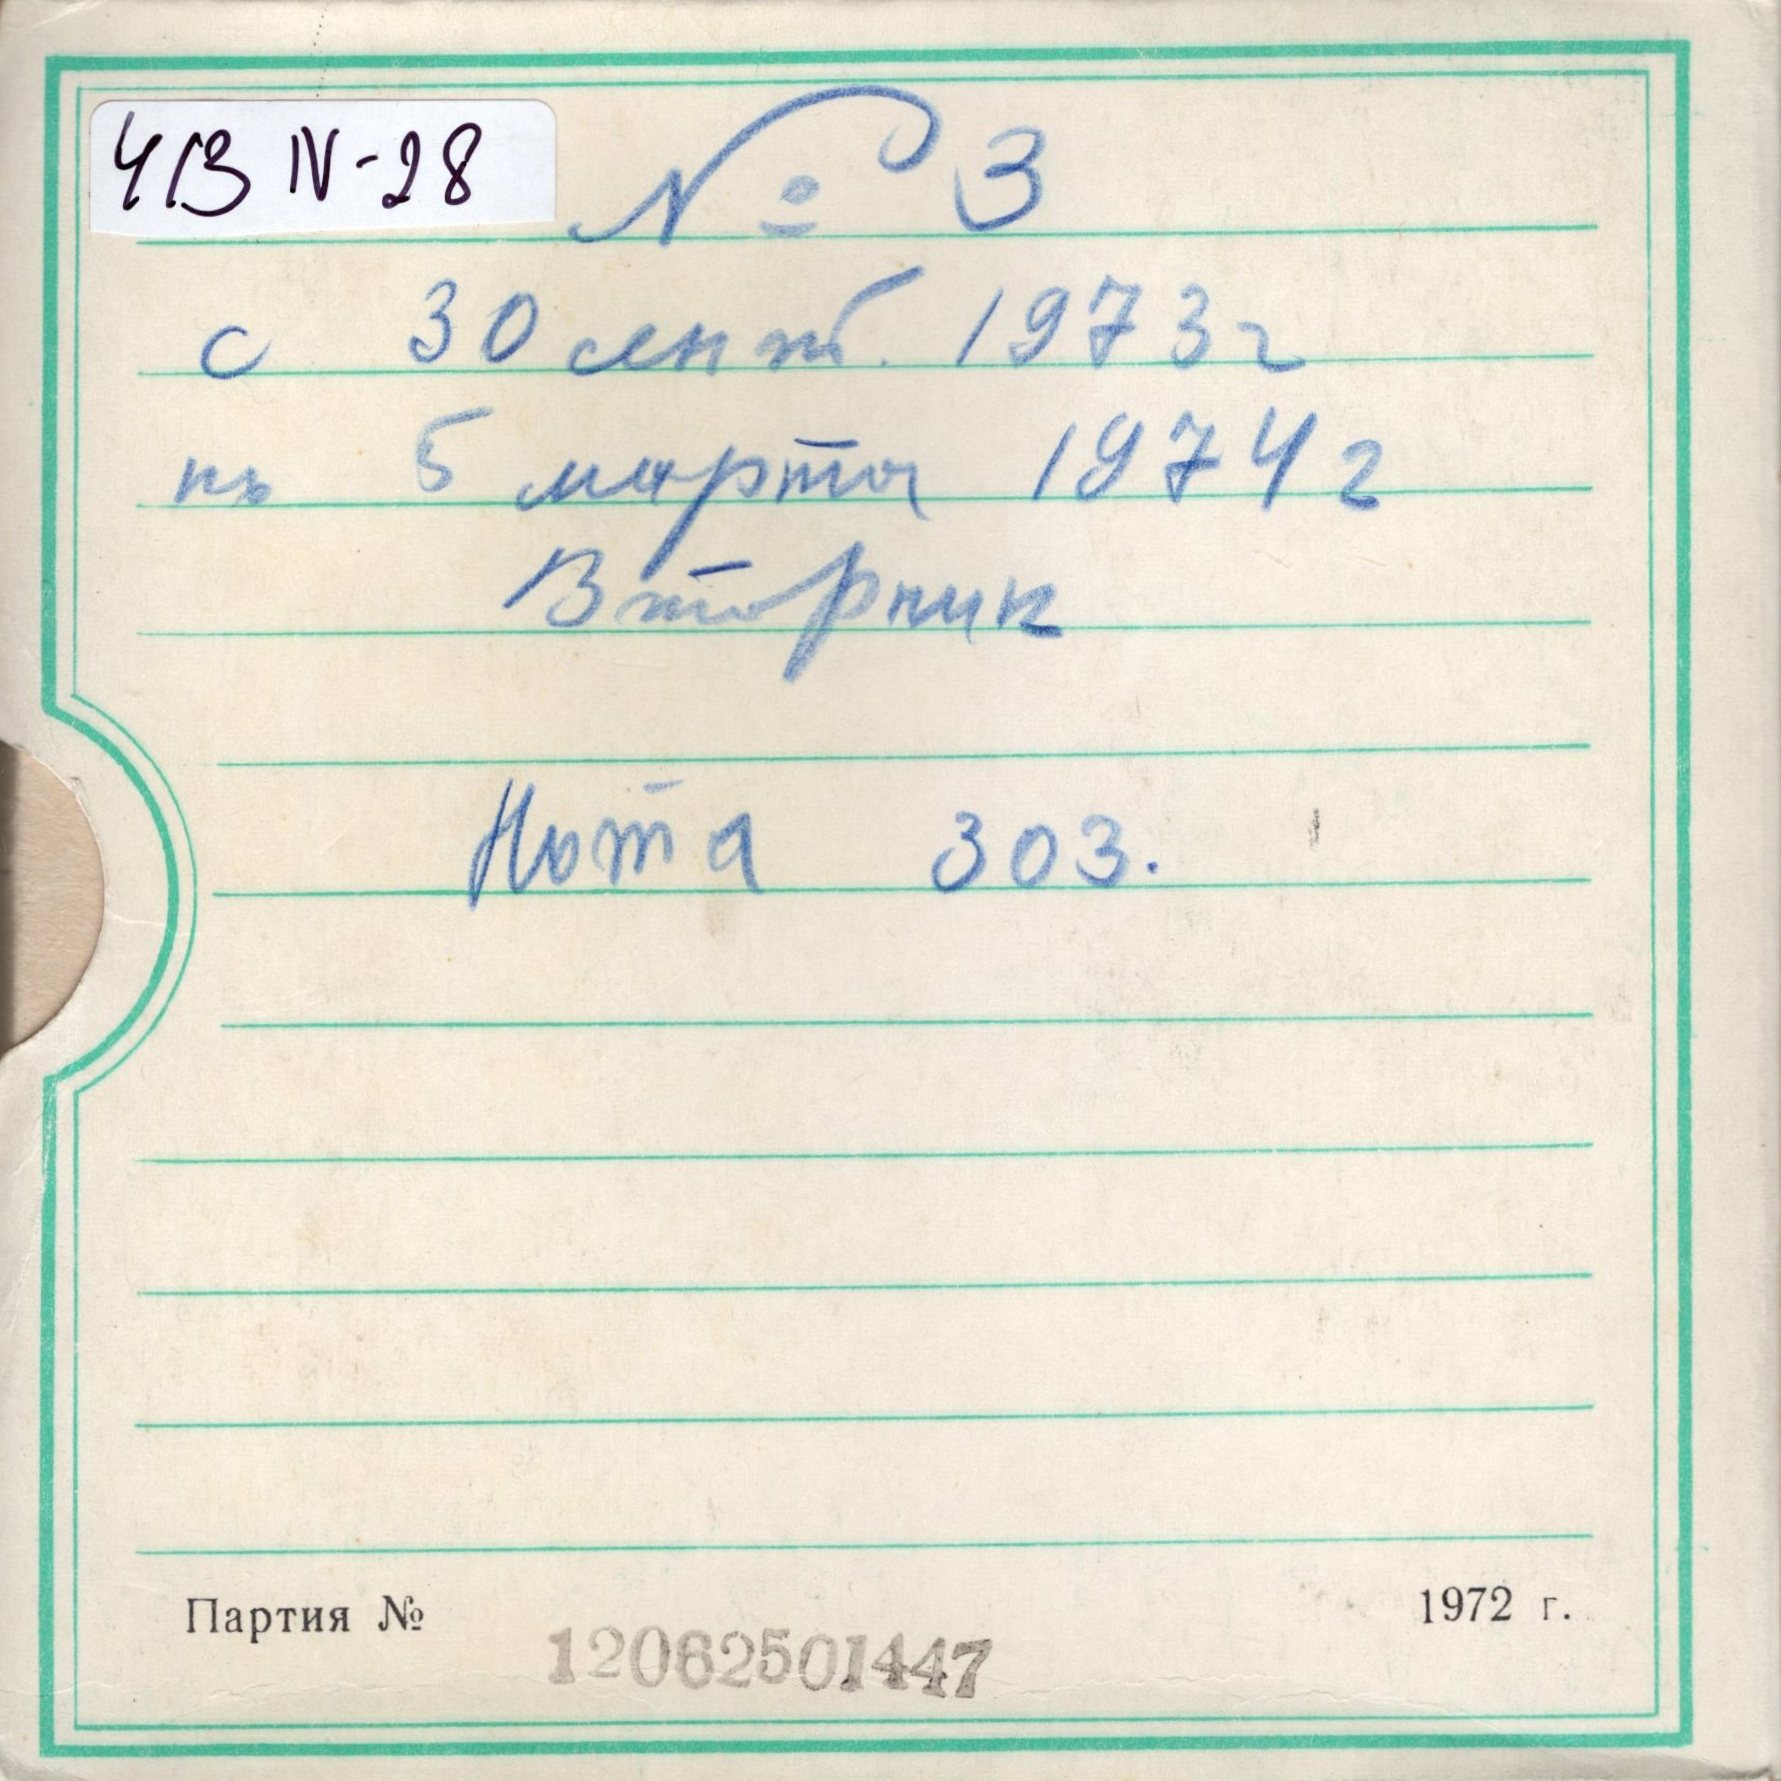 ЧВ IV-28
№ 3
с 30 сент. 1973 г
по 5 марта 1974 г
Вторник
Нота 303.
Партия №
1972 г.
12062501447